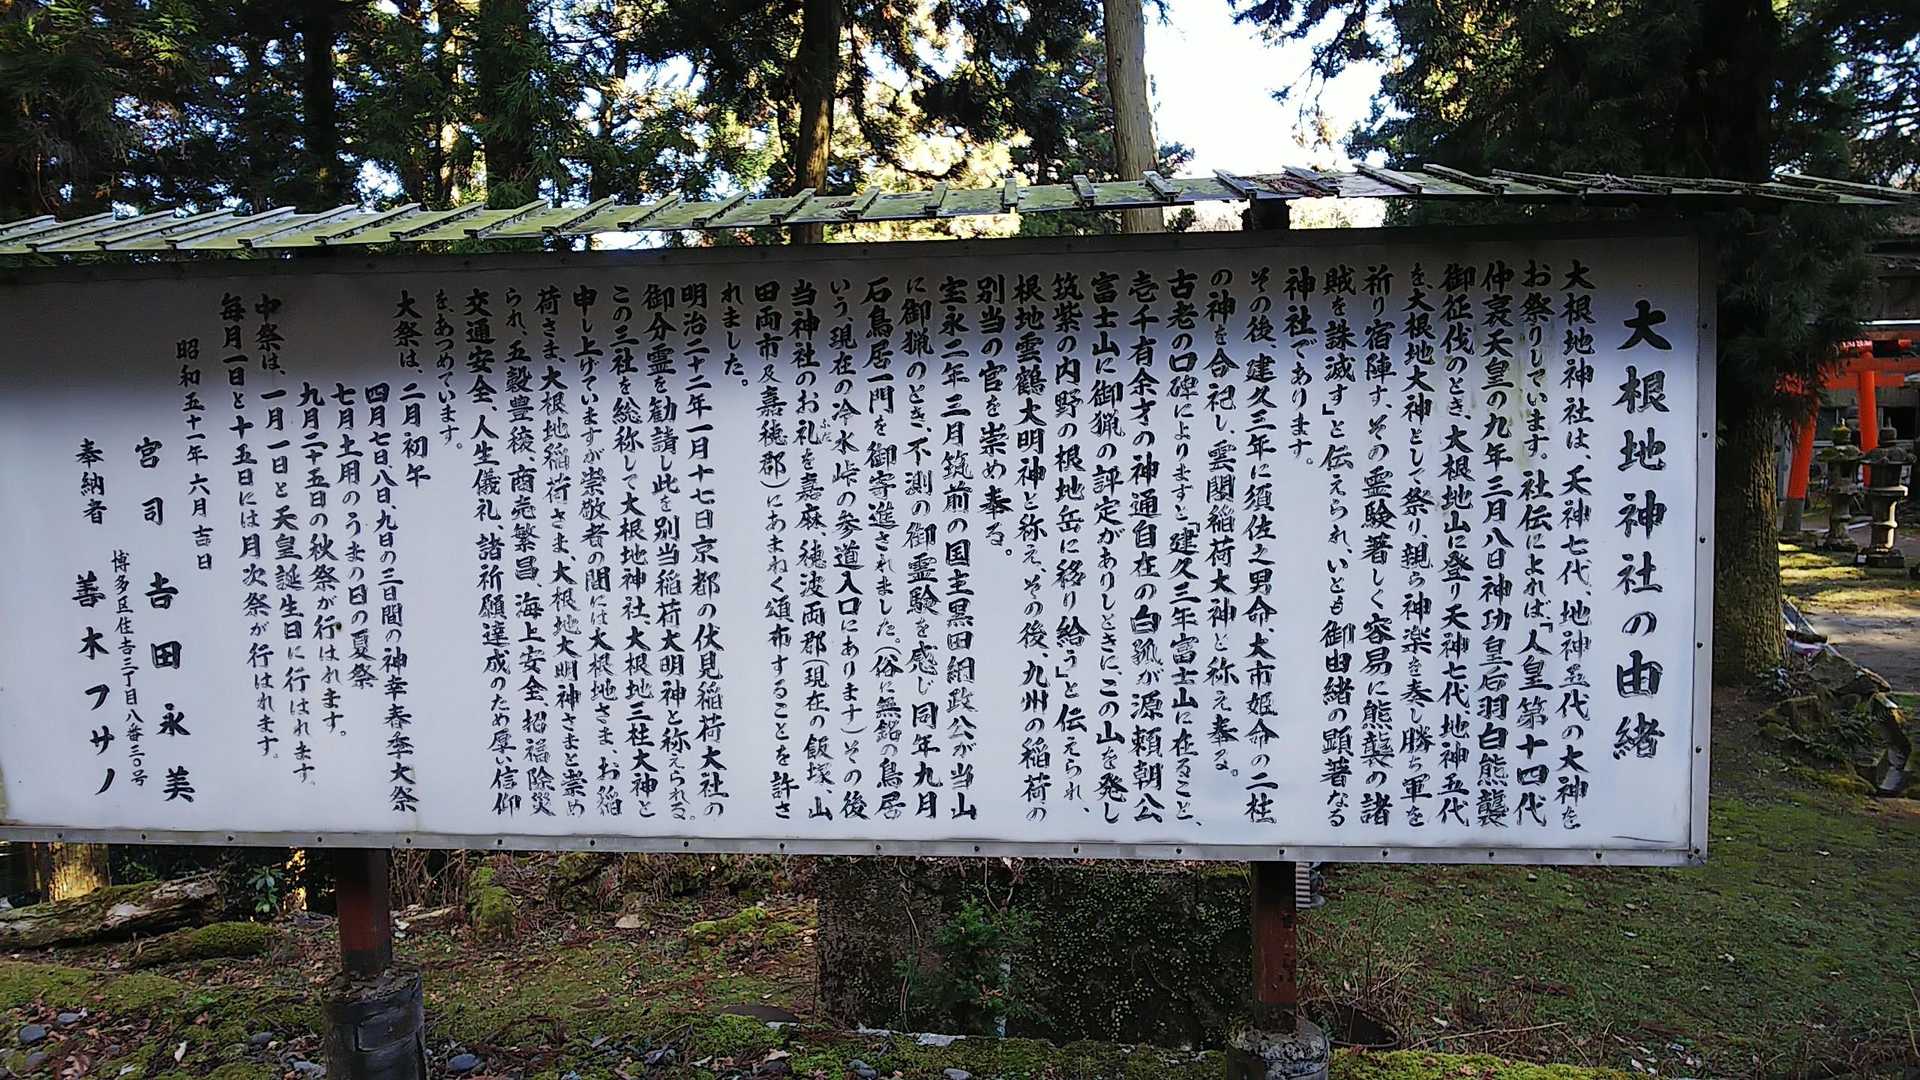 大根地神社の由緒
大根地神社は、天神七代、地神五代の大神を
お祭りしています。社伝によれば、「人皇第十四代
仲哀天皇の九年三月八日神功皇后羽白熊襲
御征伐のとき、大根地山に登り天神七代地神五代
を大根地大神として祭り、親ら神楽を奏し勝ち軍を
祈り宿陣す、その霊験著しく容易に熊襲の諸
賊を誅滅す」と伝えられ、いとも御由緒の顕著なる
神社であります。
その後、建久三年に須佐之男命、大市姫命の二柱
の神を合祀し、雲閣稲荷大神と称え奉る。
古老の口碑によりますと「建久三年富士山に在ること、
壱千有余才の神通自在の白狐が源頼朝公
富士山に御猟の評定がありしときに、この山を発し
筑紫の内野の根地岳に移り給う」と伝えられ、
根地雲鶴大明神と称え、その後、九州の稲荷の
別当の官を崇め奉る。
宝永二年三月筑前の国主黒田綱政公が当山
に御猟のとき、不測の御霊験を感じ同年九月
石鳥居一門を御寄進されました。（俗に無銘の鳥居
いう、現在の冷水峠の参道入口にあります）その後
当神社のお札を嘉麻、穂波両郡（現在の飯塚、山
ふだ
田両市及嘉穂郡）にあまねく頒布することを許さ
れました。
明治二十二年一月十七日京都の伏見稲荷大社の
御分霊を勧請し此を別当稲荷大明神と称えられる。
この三社を総称して大根地神社、大根地三社大神と
申し上げていますが崇敬者の間には大根地さま、お稲
荷さま、大根地稲荷さま、大根地大明神さまと崇め
られ、五穀豊穣、商売繁昌、海上安全、招福除災
交通安全、人生儀礼、諸祈願達成のため厚い信仰
を、あつめています。
大祭は、二月初午
四月七日、八日、九日の三日間の神幸春季大祭
七月土用のうまの日の夏祭
九月二十五日の秋祭が行はれます。
中祭は、一月一日と天皇誕生日に行はれます。
毎月一日と十五日には月次祭が行はれます。
昭和五十一年六月吉日
宮司 吉田永美
博多区住吉三丁目八番三〇号
奉納者 善木フサノ